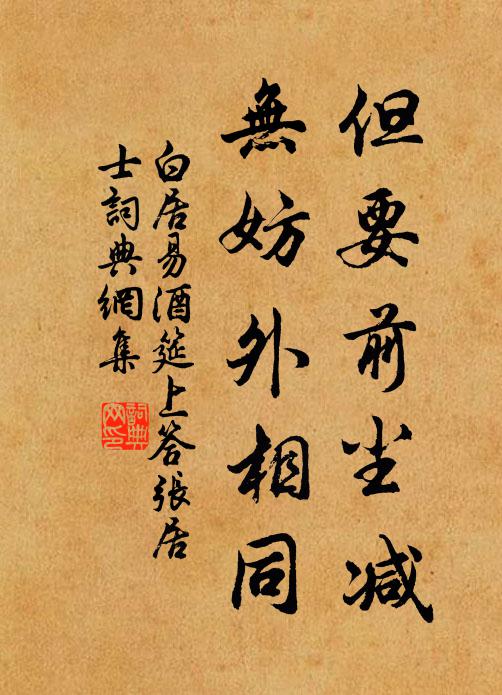 但要前尘减
無妨外相同
白居易酒筵上答張居
士詞典網集
詞典
网印